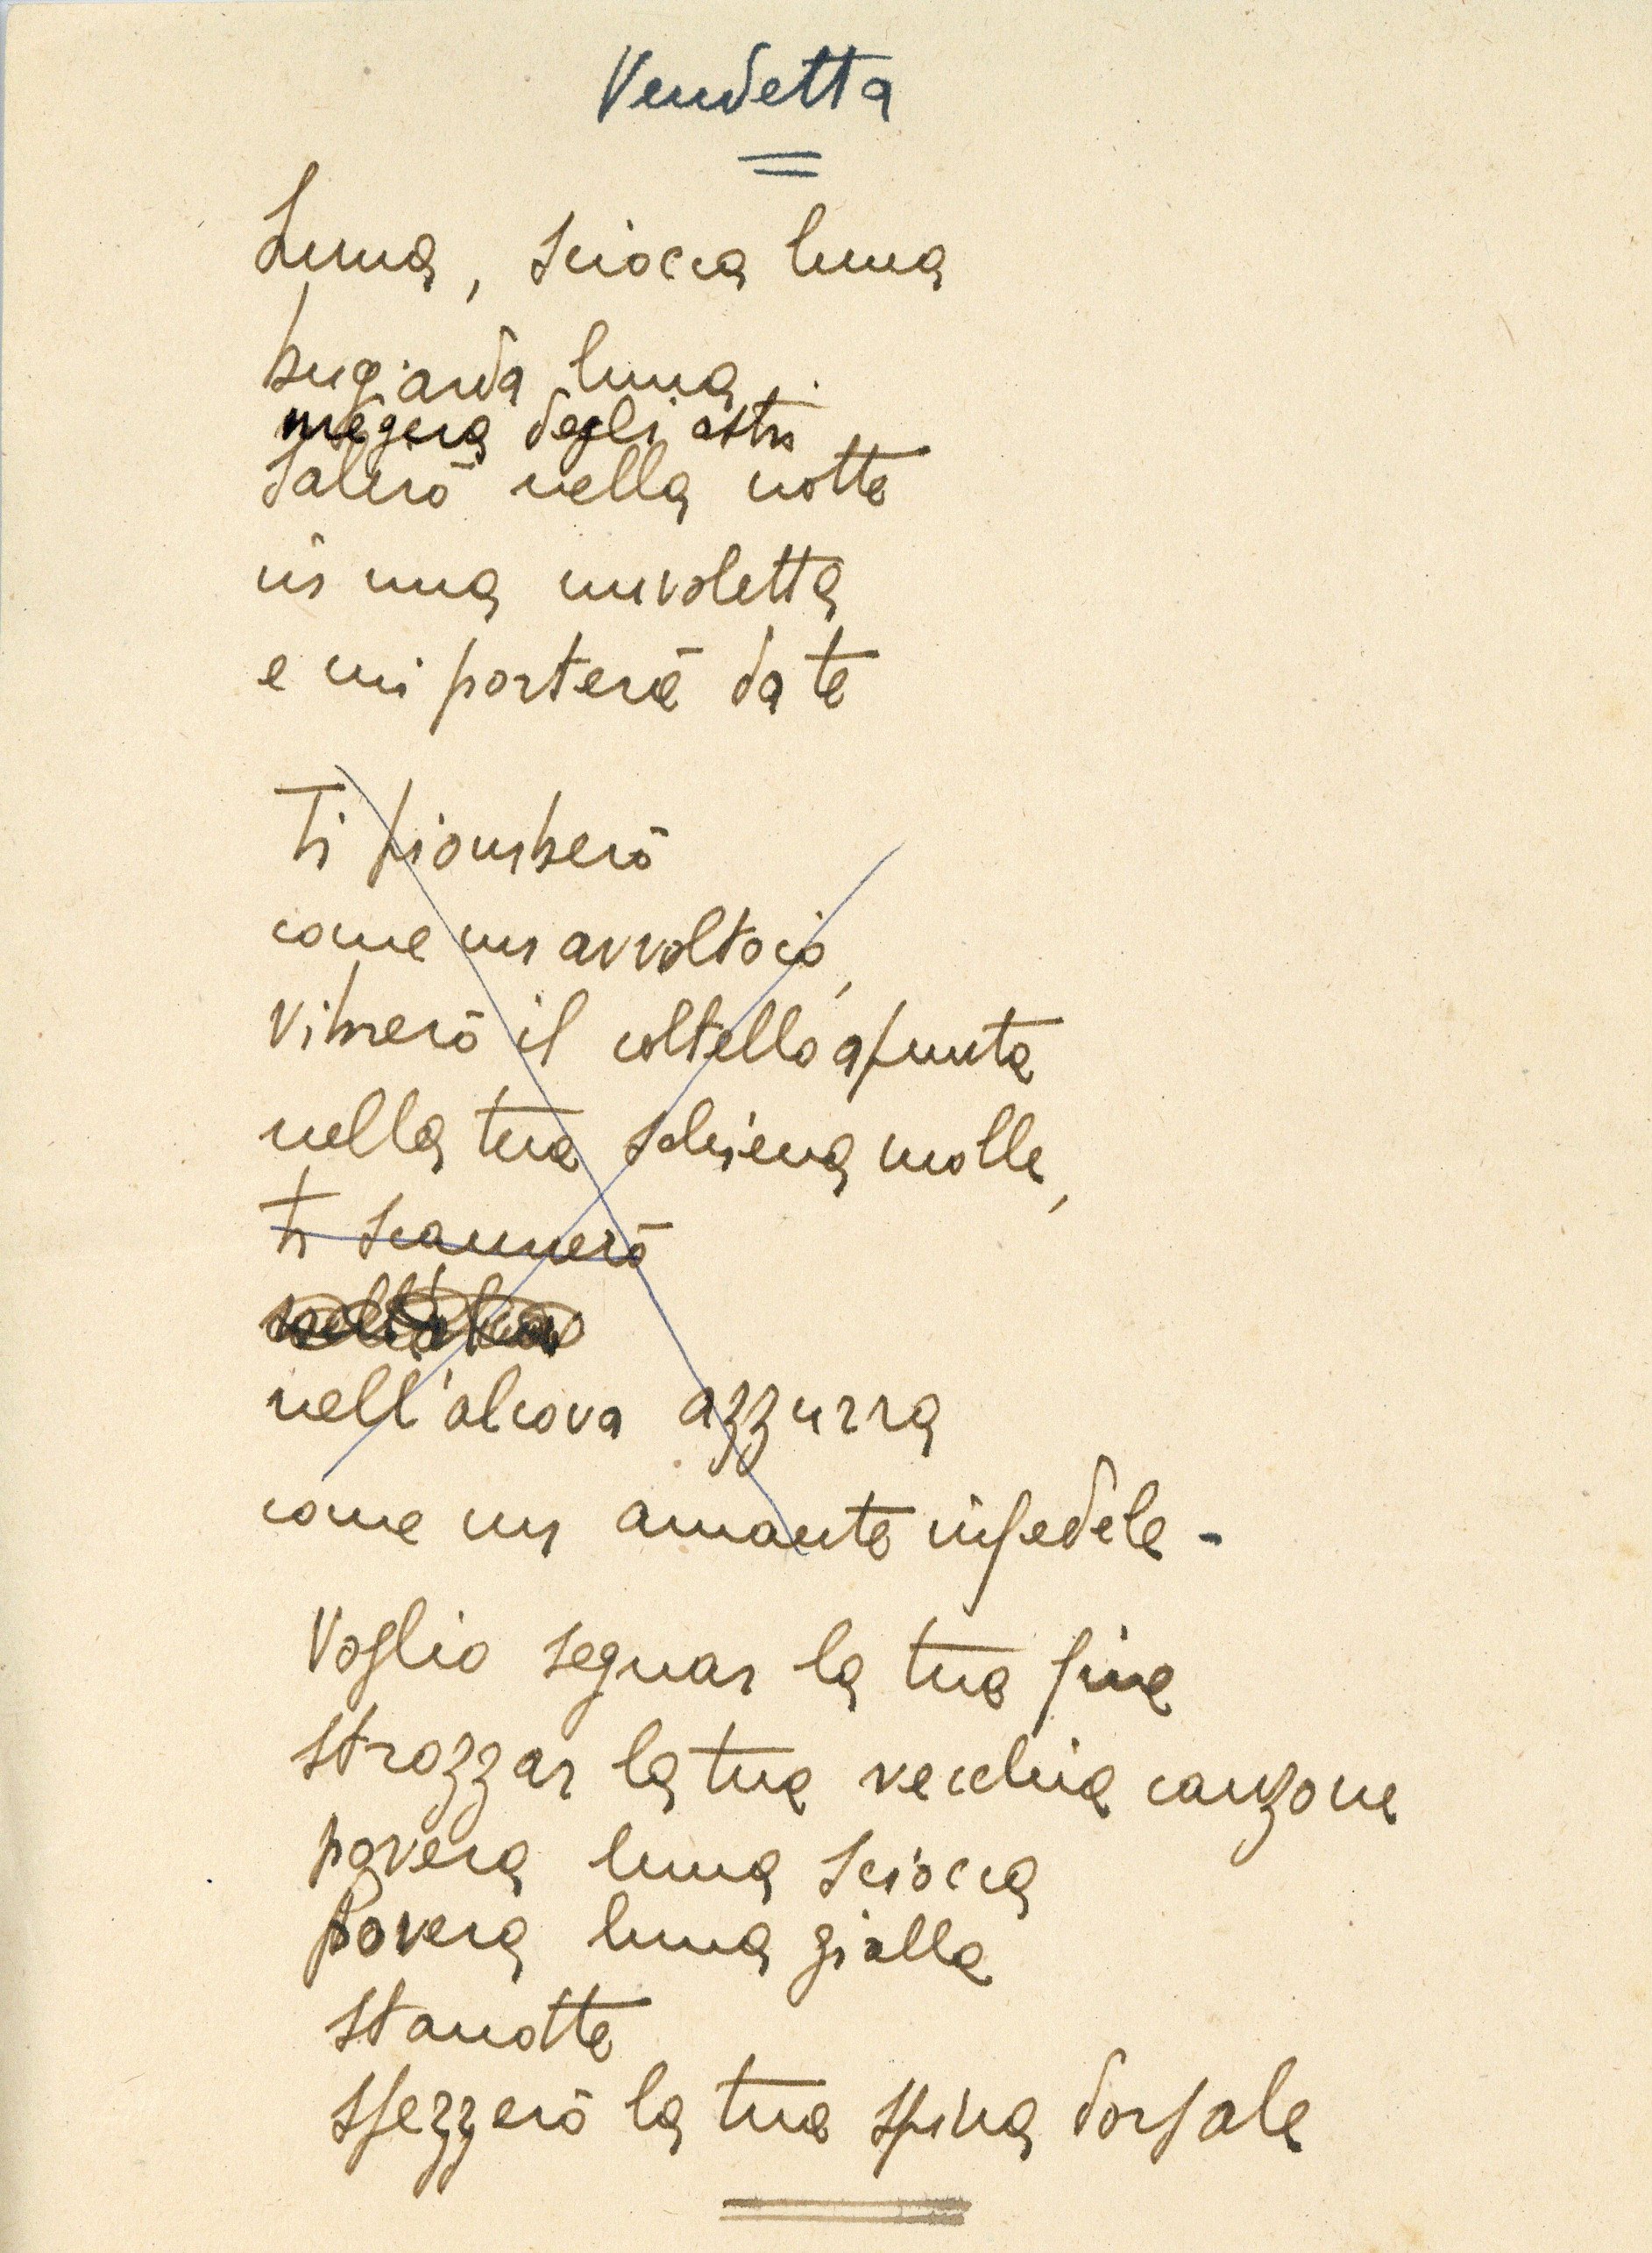 Vendetta
Luna, sciocca luna
bugiarda luna
megera degli astri
salirò nella notte
in una nuvoletta
e mi porterà da te
Ti piomberò
come un avvoltoio,
vibrerò il coltello a punta
nella tua schiena molle,
ti scannerò
nell'alcova azzurra
come un amante infedele -
Voglio segnar la tua fine
strozzar la tua vecchia canzone
povera luna sciocca
povera luna gialla
stanotte
spezzerò la tua spina dorsale